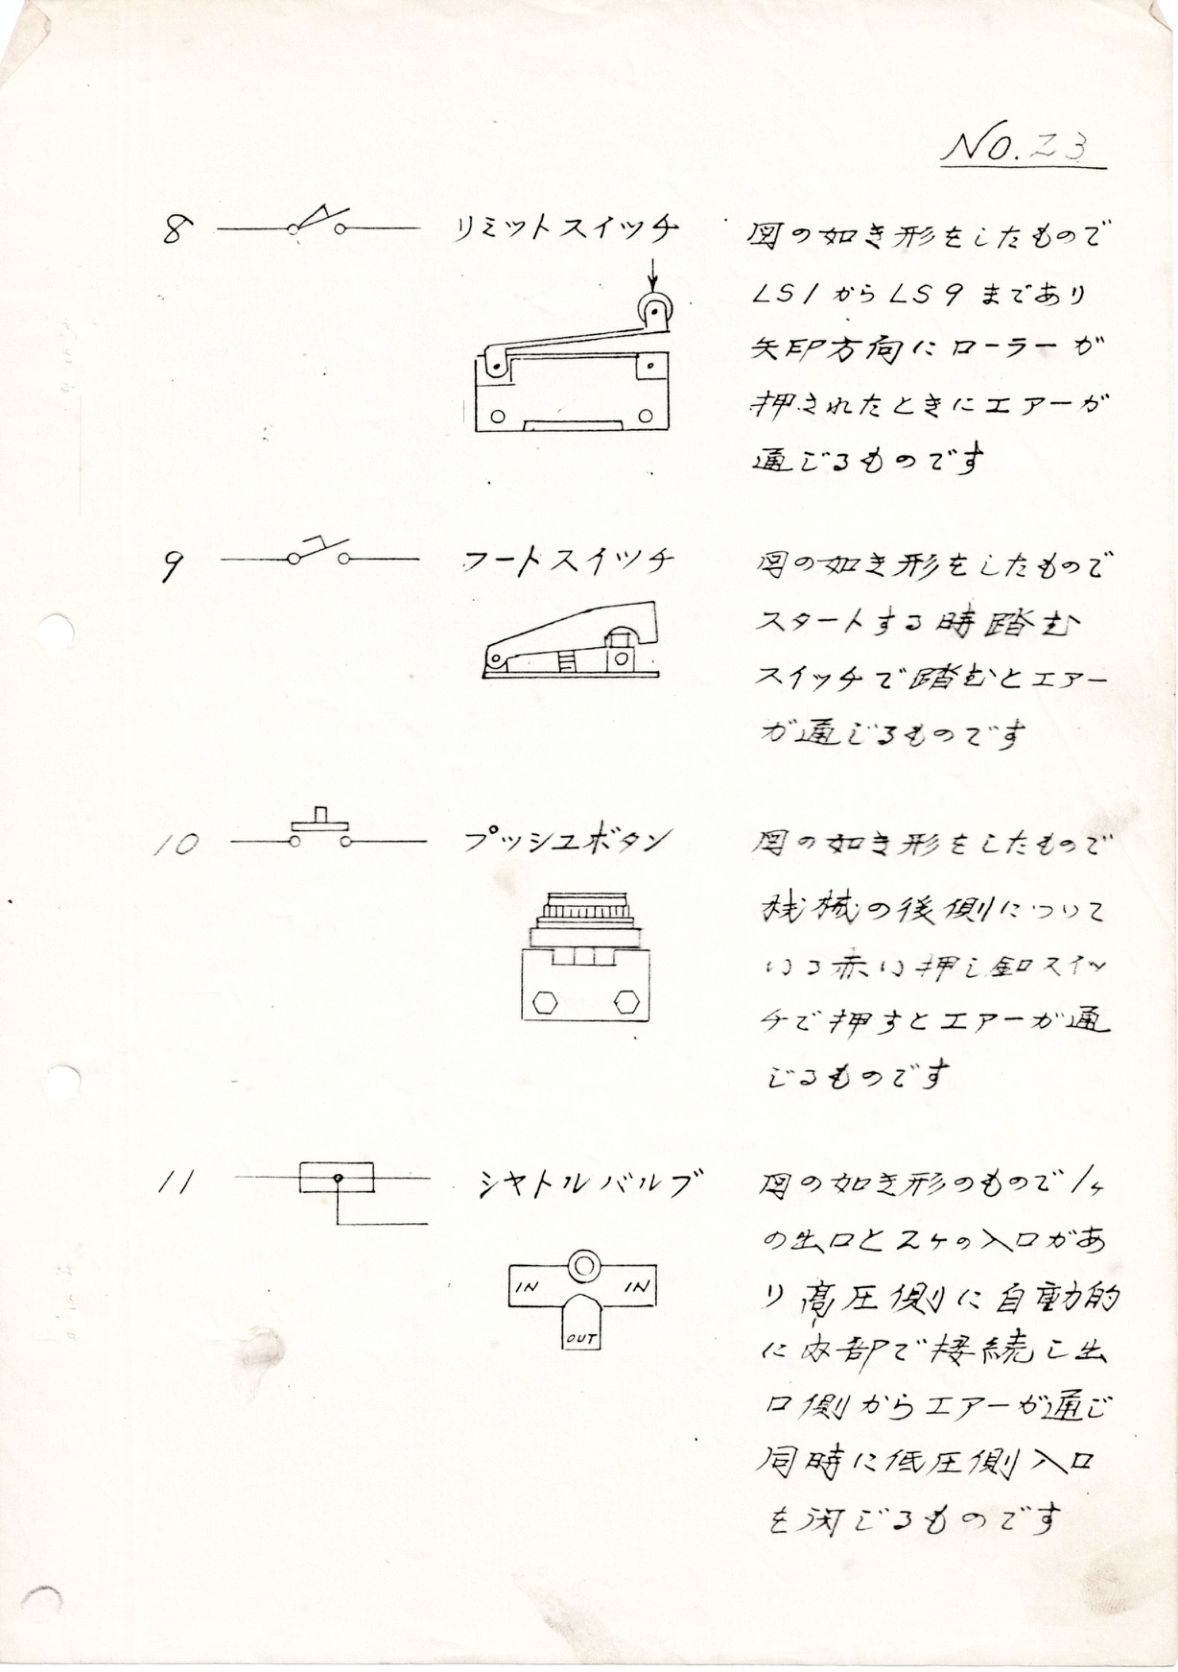 NO.23
8 リミットスイッチ
図の如き形をしたもので
LS1からLS9まであり
矢印方向にローラーが
押されたときにエアーが
通じるものです
9 フートスイッチ
図の如き形をしたもので
スタートする時踏む
スイッチで踏むとエアー
が通じるものです
10 プッシュボタン
図の如き形をしたもので
機械の後側について
いる赤い押し釦スイッ
チで押すとエアーが通
じるものです
11 シャトルバルブ
IN IN
OUT
図の如き形のもので1ヶ
の出口と2ヶの入口があ
り高圧側に自動的
に内部で接続し出
口側からエアーが通じ
同時に低圧側入口
を閉じるものです